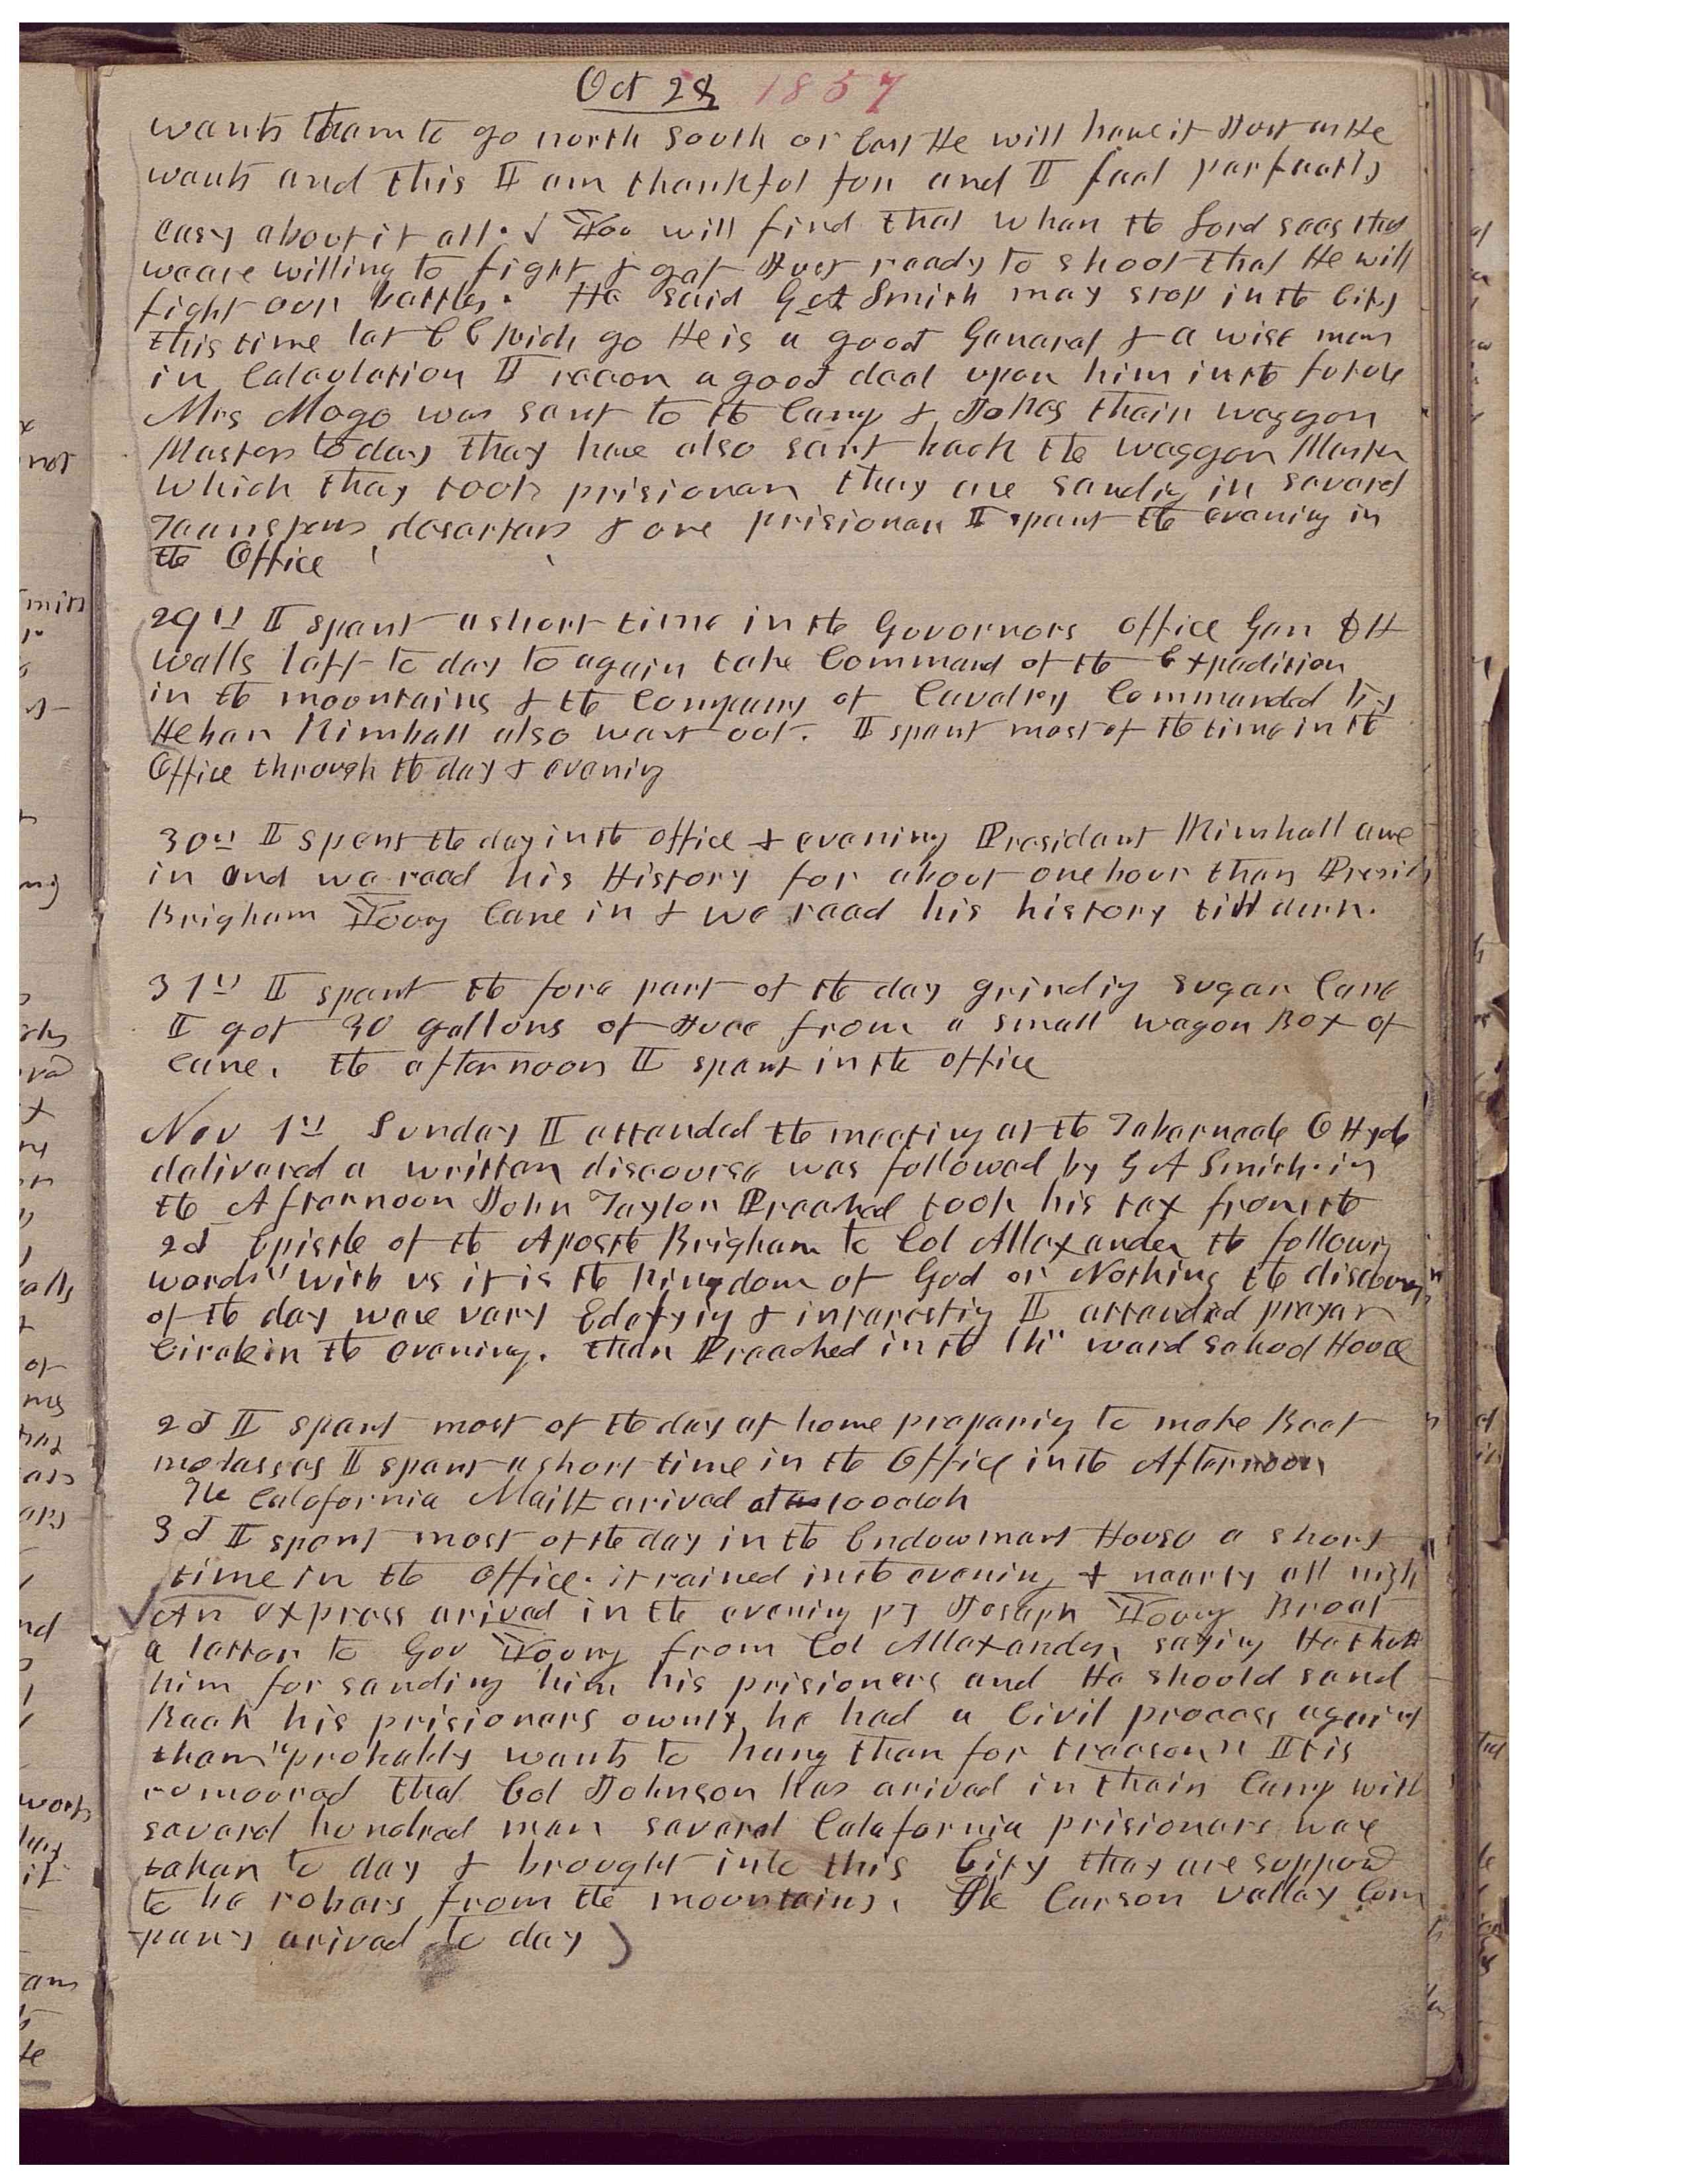 Oct 28 1857
wants them to go north South or East He will have it Just as He
wants and this I am thankful for and I feel perfectly
easy about it all. You will find that when the Lord sees that
we are willing to fight & get Just ready to shoot that He will
fight our battles. He said G A Smith may stop in the City
this time let C C Rich go He is a good General & a wise man
in Calculation I recon a good deal upon him in the future
Mrs Mogo was sent to the Camp & Jones their waggon
Master to day they have also sent back the waggon Master
which they took prisioner they are sending in several
Teamsters desarters & one prisioner I spent the evening in
the Office
29th I spent a short time in the Governors office Gen D H
Wells left to day to again take Command of the Expedition
in the mountains & the Company of Cavalry Commanded by
Heber Kimball also went out. I spent most of the time in the
Office through the day & evening
30th I spent the day in the office & evening President Kimball came
in and we read his History for about one hour then Presid
Brigham Young came in & we read his history till dark.
31st I spent the fore part of the day grinding Sugar Cane
I got 30 gallons of Juce from a small wagon Box of
Cane. the afternoon I spent in the office
Nov 1st Sunday I attended the meeting at the Tabernacle O Hyde
delivered a written discourse was followed by G A Smith. in
the Afternoon John Taylor Preached took his tax from the
2d Epistle of the Apostle Brigham to Col Allexander the following
words "with us it is the kingdom of God or Nothing" the discourses
of the day were very Edefying & interesting I attended prayer
Circle in the evening. then Preached in the 14th ward School House
2d I spent most of the day at home preparing to make Beet
molasses I spent a short time in the Office in the Afternoon
The Calafornia Mail arived at 10 oclok
3d I spent most of the day in the Endowment House a short
time in the office. it rained in the evening & nearly all nigh
An express arived in the evening by Joseph Young Brout
a letter to Gov Young from Col Allexander saying He thank
him for sending him his prisioners and He should send
Back his prisioners ownly he had a Civil process against
them "probably wants to hang them for treason" It is
rumoored that Col Johnson has arived in their Camp with
several hundred men several Calafornia prisioners ware
taken to day & brought into this City they are supposed
to be robers from the mountains. The Carson valley Com
pany arived to day